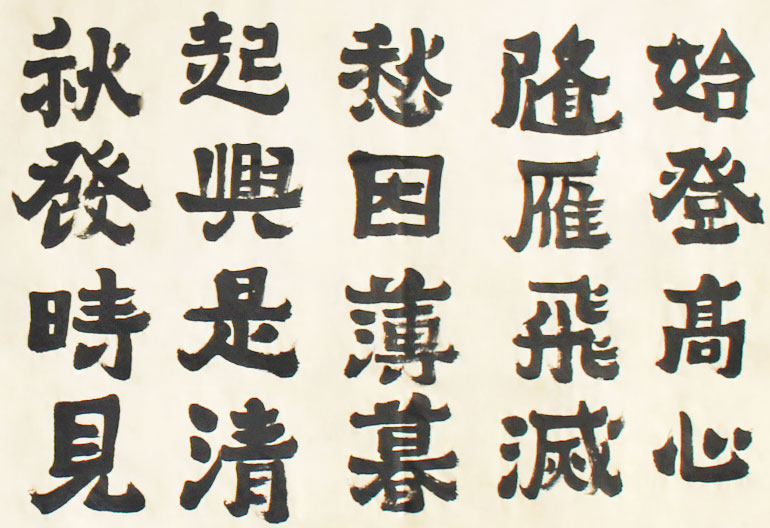 始登高心
随雁飛滅
愁因薄暮
起興是清
秋發時見